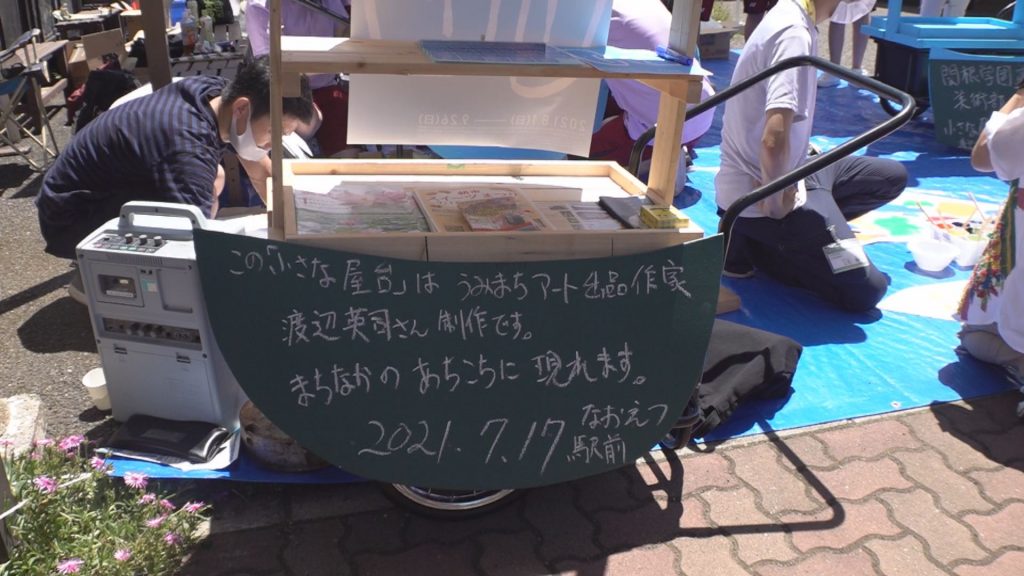 この「小さな屋台」は うみまちアート 出品作家
渡辺英司さん 制作です。
まちなかの あちこちに 現れます。
2021. 7. 17 なおえつ
駅前
2021.8.1(日)━━9.26(日)
小さな